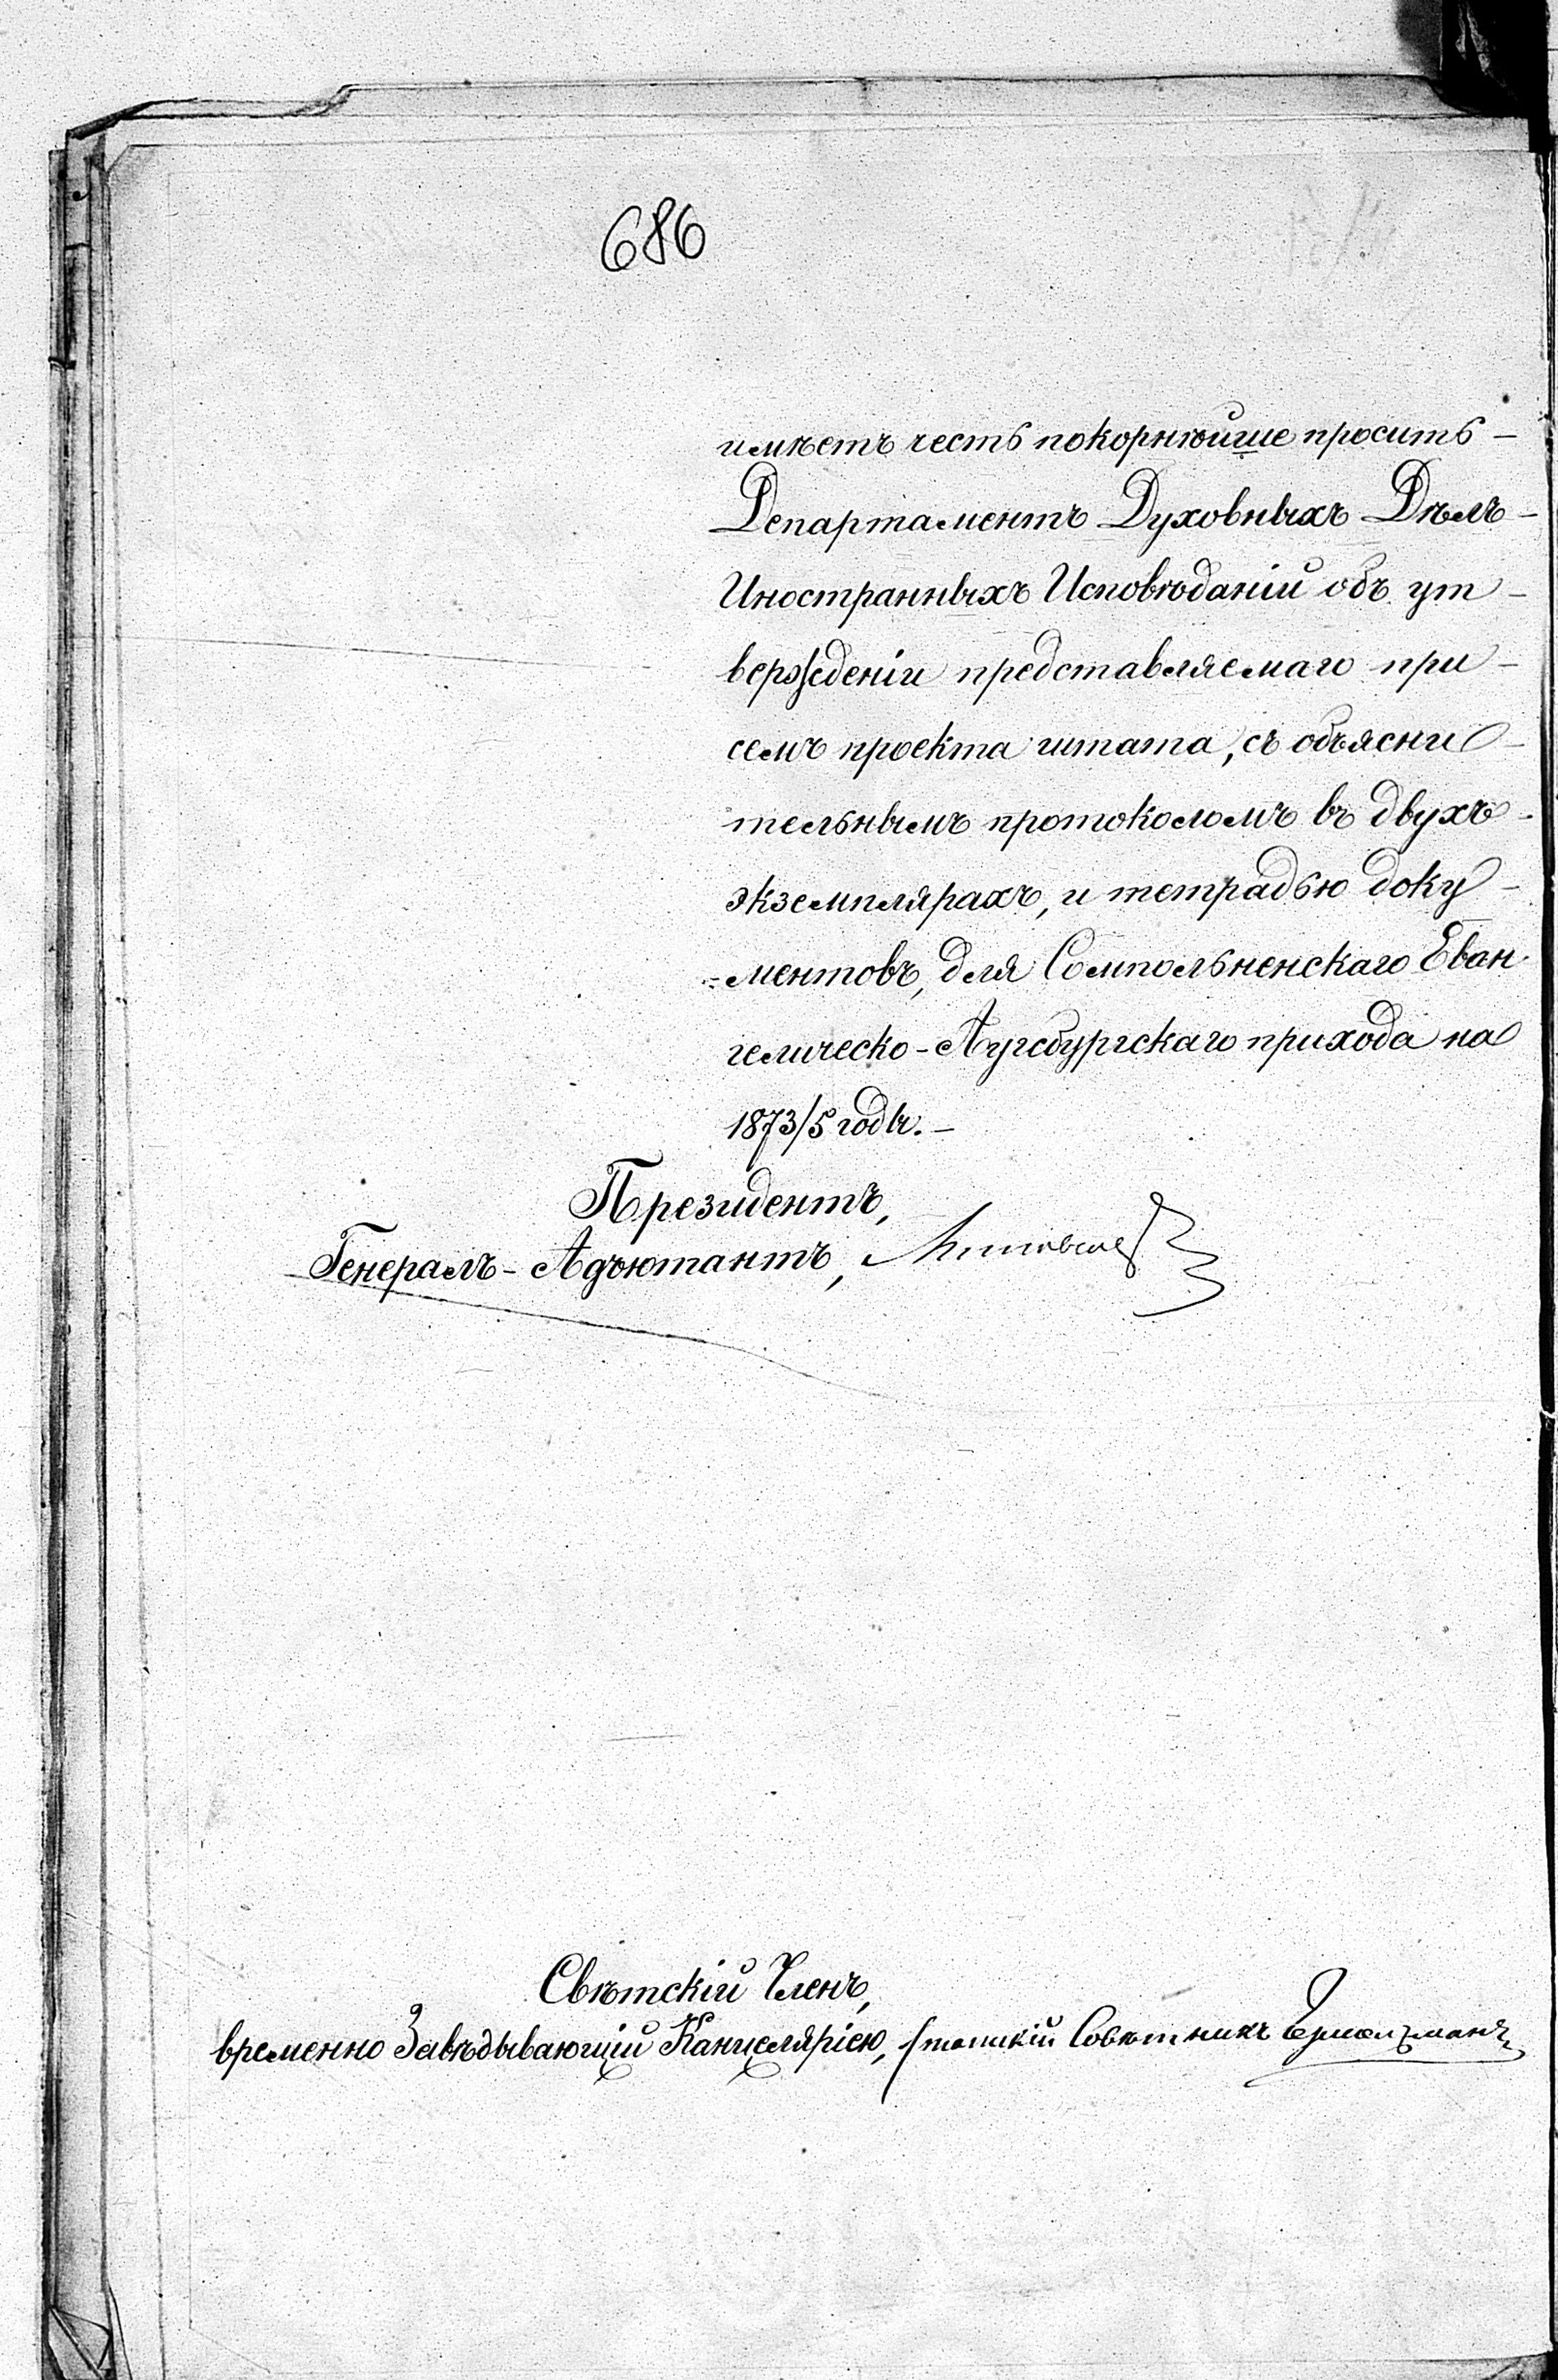 686
имѣетъ честь покорнѣйше просить -
Департаментъ Духовныхъ Дѣлъ -
Иностранныхъ Исповѣданій объ ут -
вержденіи представляемаго при -
семъ проекта штата, съ объясни -
тельнымъ протоколомъ въ двухъ -
экземплярахъ, и тетрадью доку -
= ментовъ, для Сомпольненскаго Еван-
гелическо-Аугсбургскаго прихода на
1873/5 годы. -
Президентъ,
Генералъ-Адъютантъ,
Свѣтскій Членъ,
временно Завѣдывающій Канцеляріею, Статскій Совѣтникъ